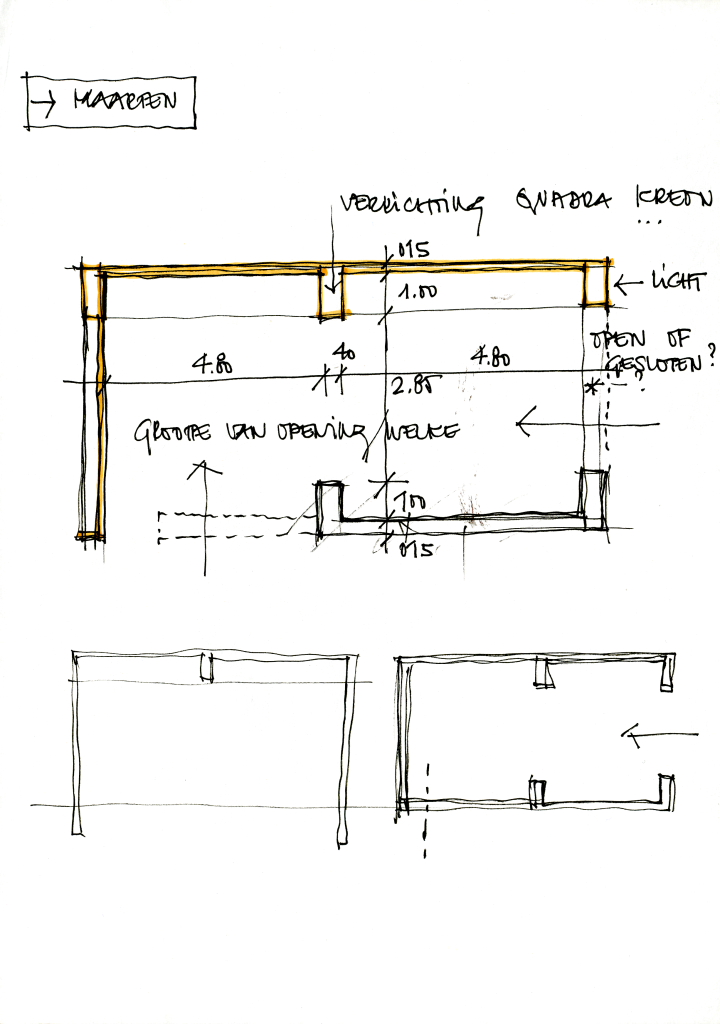 → MAARTEN
VERLICHTING QUADRA KREON
...
015
1.00
← LICHT
OPEN OF
GESLOTEN?
4.80 40 4.80
2.85
* – ?
GROOTTE VAN OPENING / WELKE
100
015